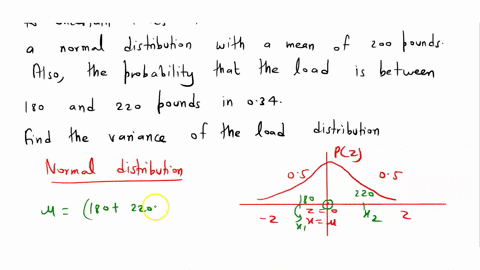 a normal distribution with a mean of 200 pounds.
Also, the probability that the load is between
180 and 220 pounds in 0.34.
find the variance of the load distribution
Normal distribution
P(z)
0.5 0.5
180 220
μ = (180+ 220
-2 z = 0 2
x₁ x = μ x₂